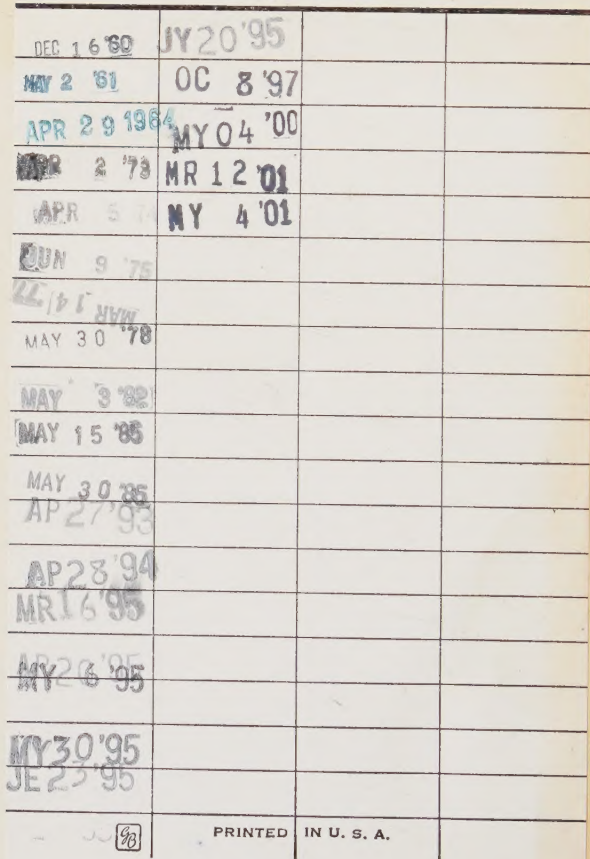 DEC 16 '60
MAY 2 '61
APR 29 1964
APR 2 '73
APR 5 74
JUN 9 '75
MAR 14 '77
MAY 30 '78
MAY 3 '82
MAY 15 '85
MAY 30 '85
AP 27 '93
AP 28 '94
MR 16 '95
AP 20 '95
MY 6 '95
MY 30 '95
JE 23 '95
JY 20 '95
OC 8 '97
MY 04 '00
MR 12 '01
MY 4 '01
GB
PRINTED IN U. S. A.